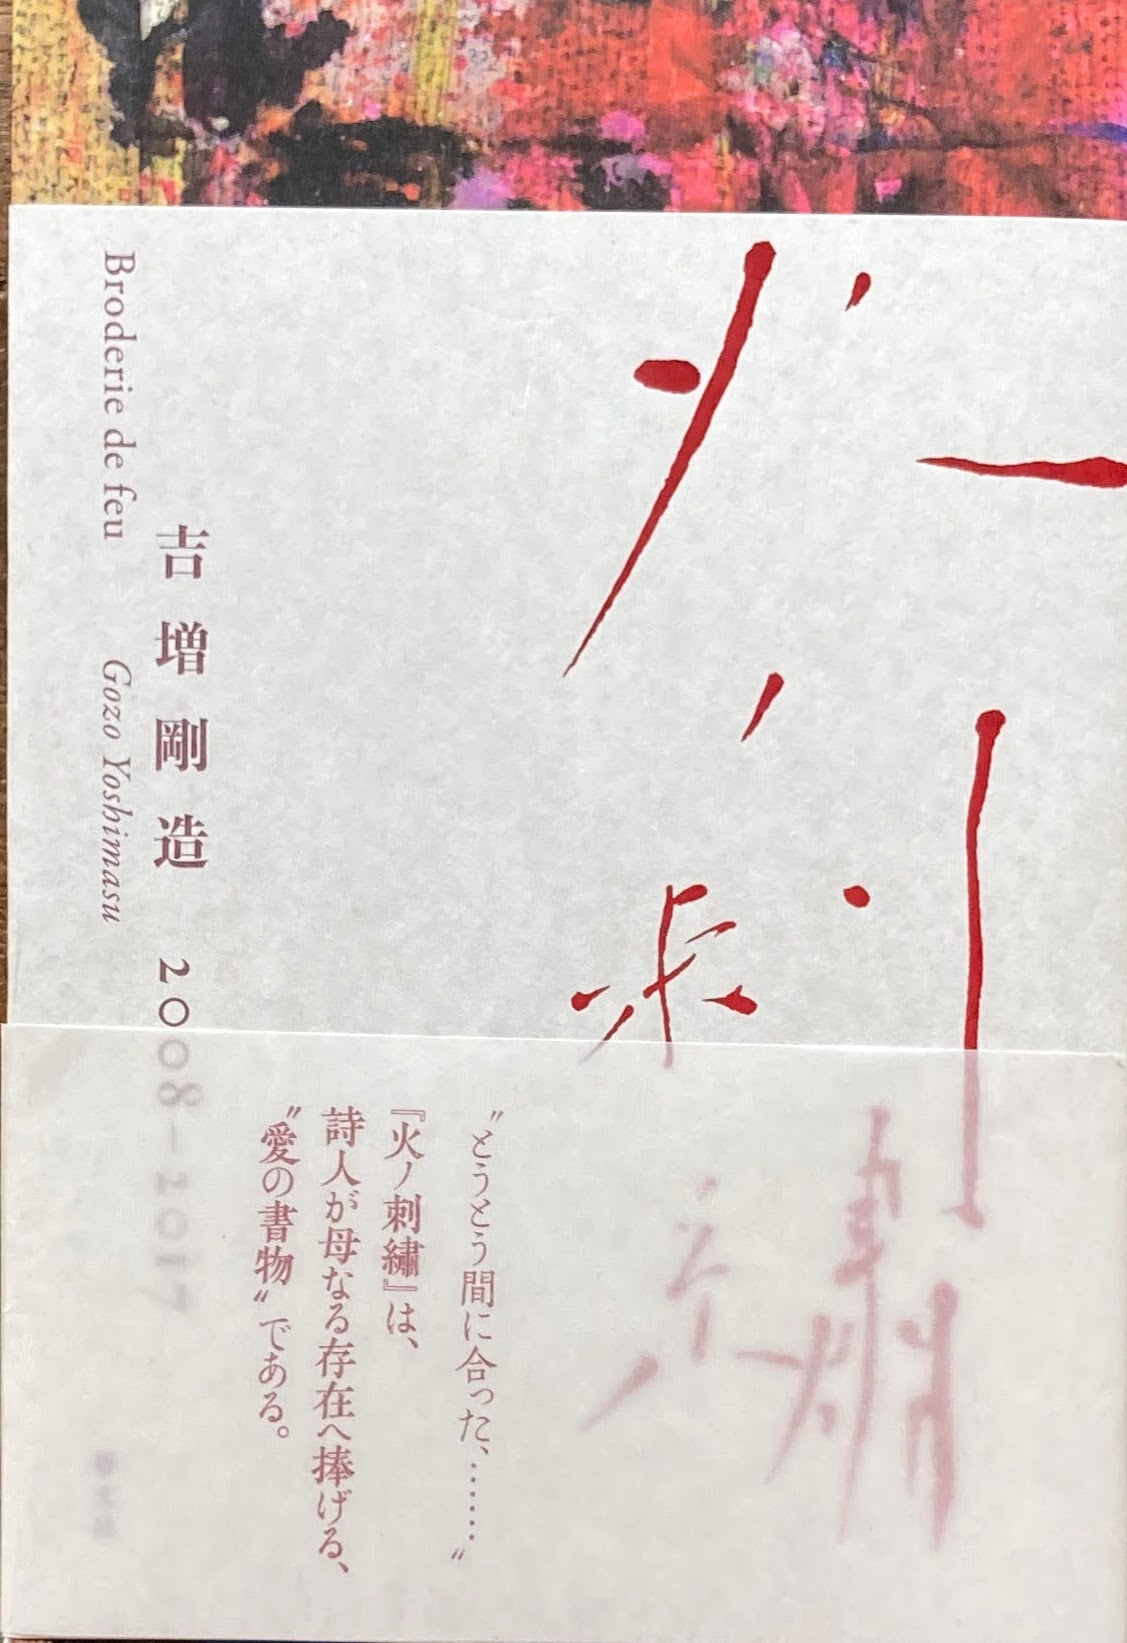 火ノ刺繡
〝とうとう間に合った、……〟
『火ノ刺繡』は、
詩人が母なる存在へ捧げる、
〝愛の書物〟である。
吉増剛造 2008–2017
Broderie de feu Gozo Yoshimasu